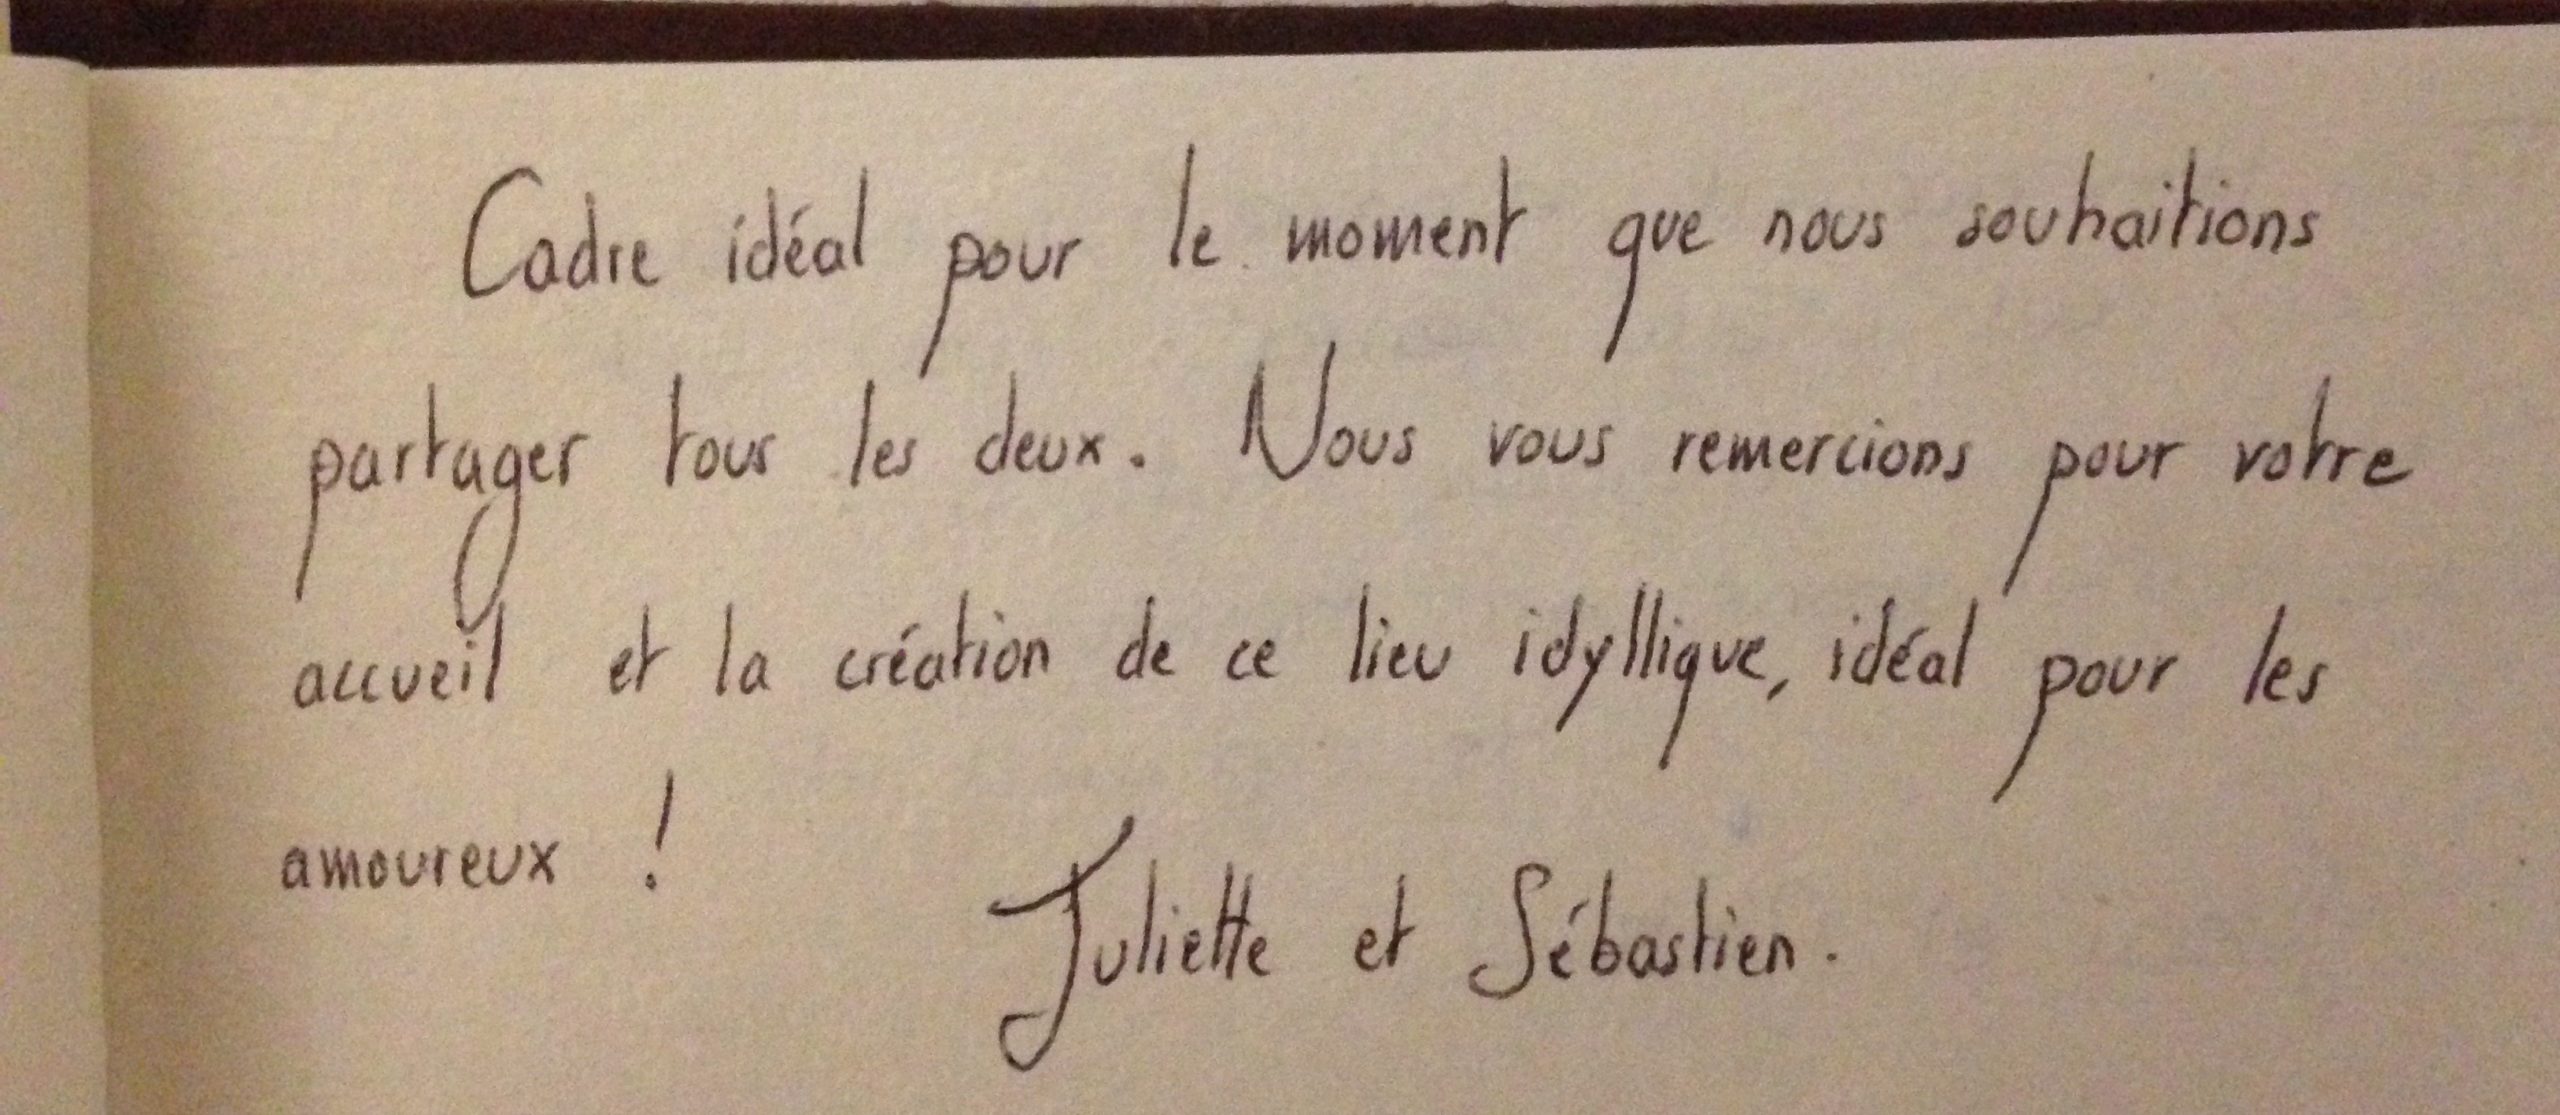 Cadre idéal pour le moment que nous souhaitions
partager tous les deux. Nous vous remercions pour votre
accueil et la création de ce lieu idyllique, idéal pour les
amoureux !
Juliette et Sébastien.